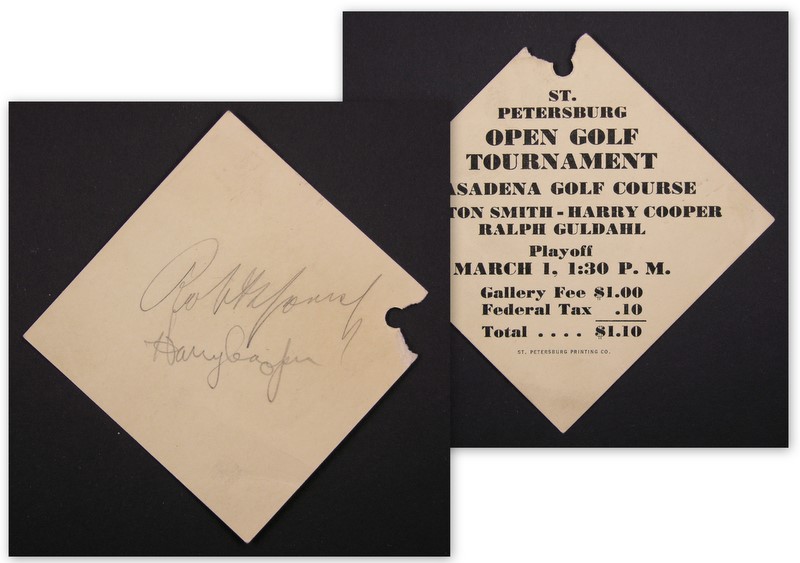 Robt T Jones Jr
Harry Cooper
ST.
PETERSBURG
OPEN GOLF
TOURNAMENT
ASADENA GOLF COURSE
TON SMITH - HARRY COOPER
RALPH GULDAHL
Playoff
MARCH 1, 1:30 P. M.
Gallery Fee $1.00
Federal Tax .10
Total .... $1.10
ST. PETERSBURG PRINTING CO.